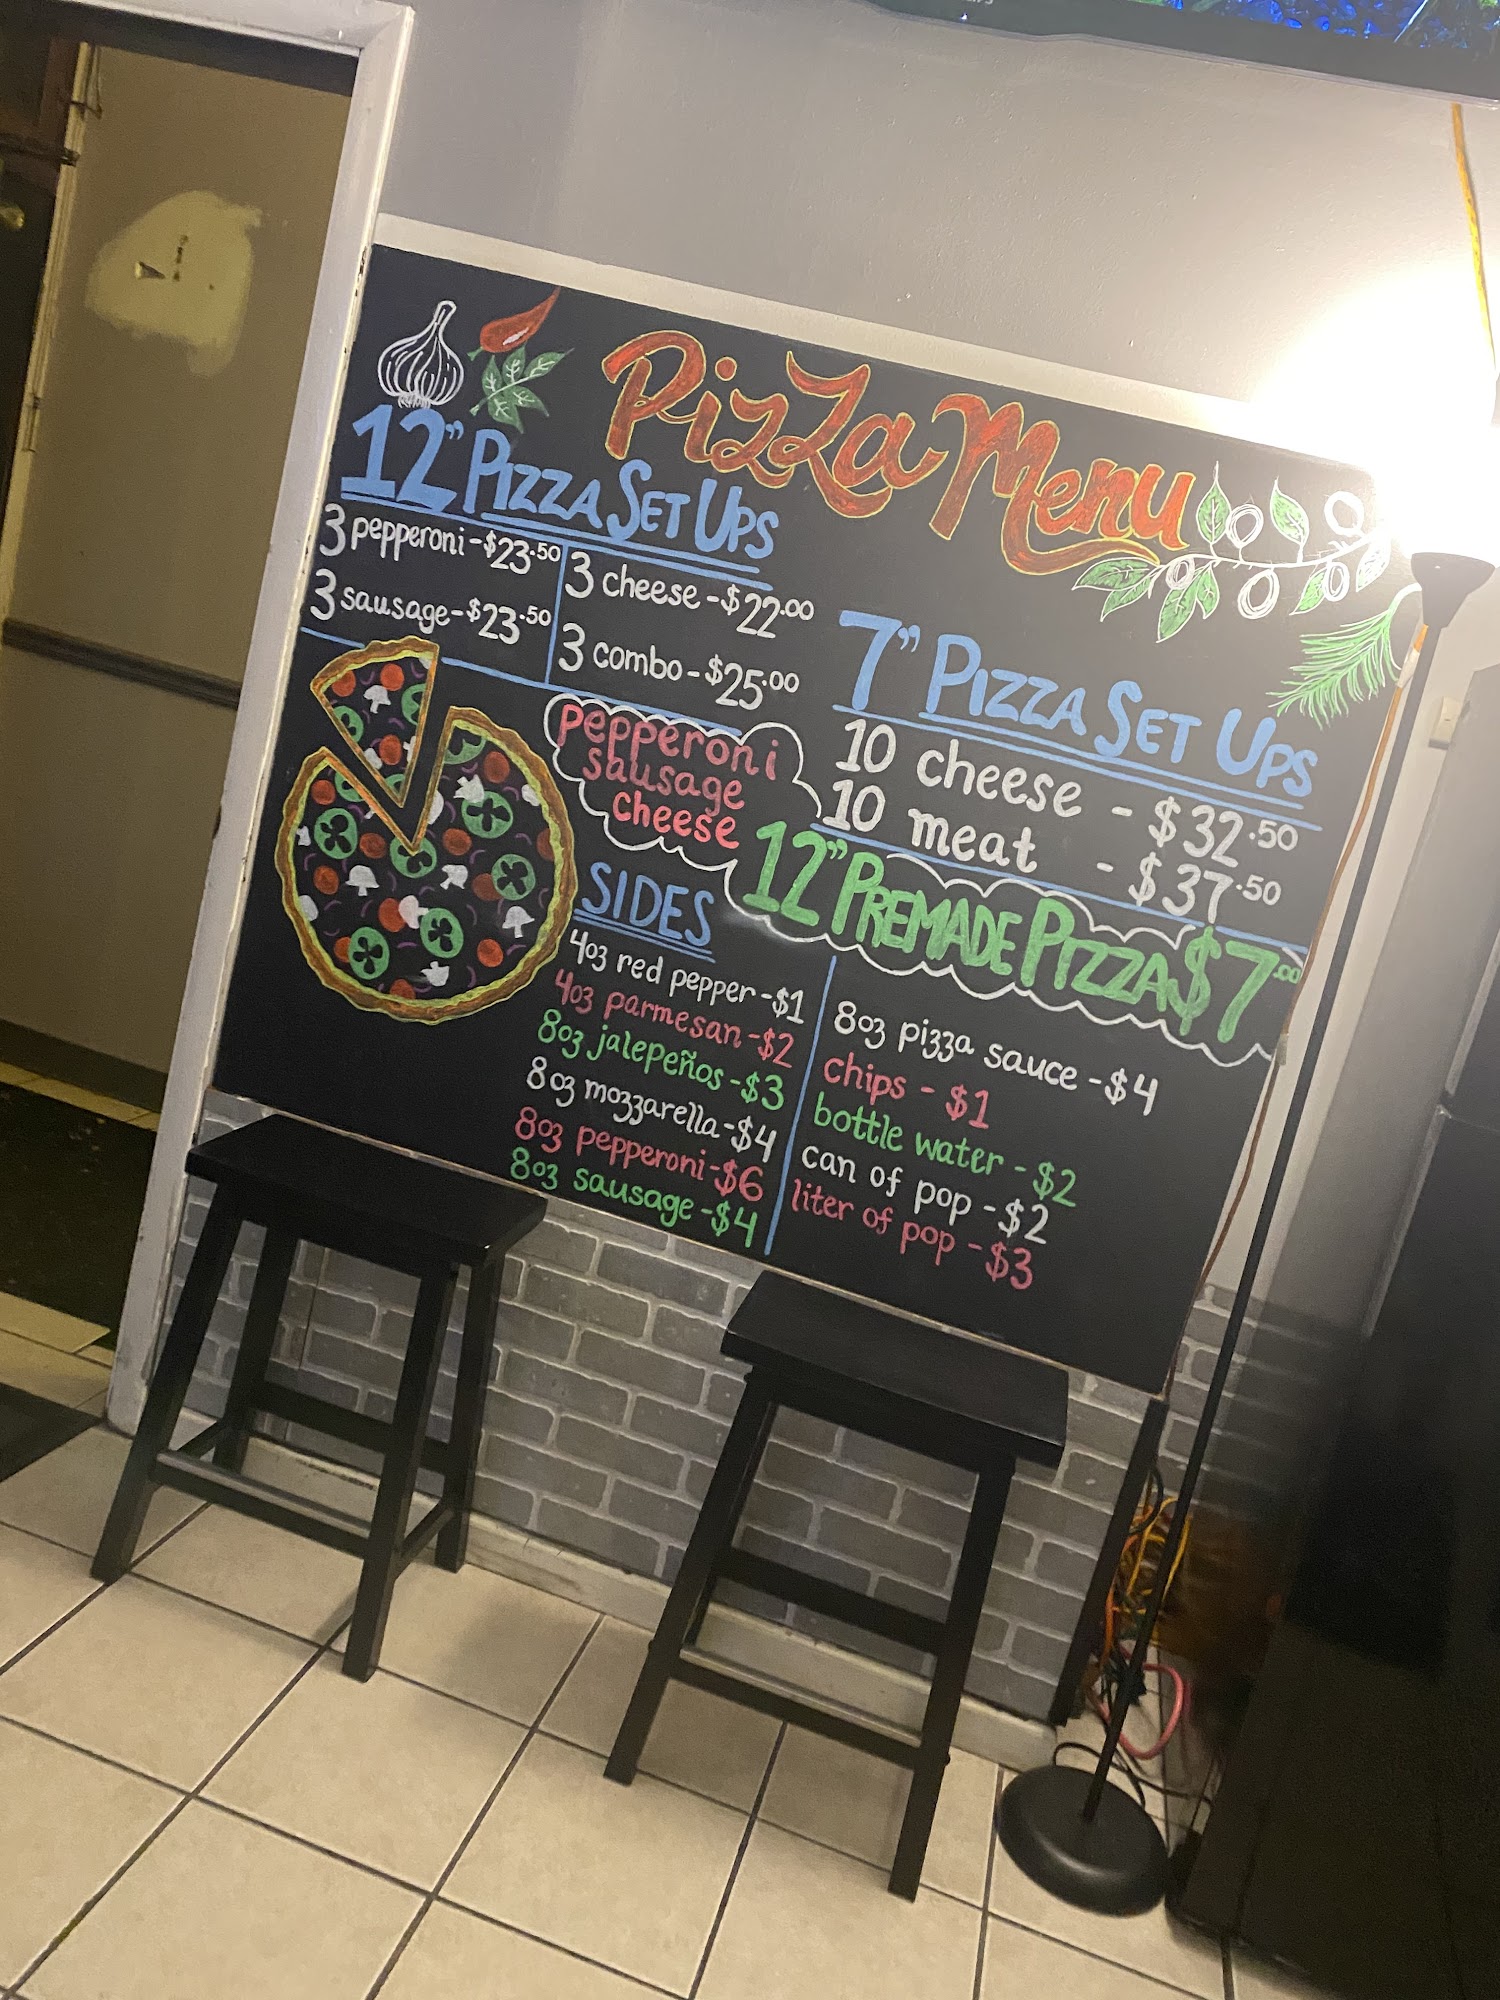 Pizza Menu
12" PIZZA SET UPS
3 pepperoni - $23.50
3 sausage - $23.50
3 cheese - $22.00
3 combo - $25.00
7" PIZZA SET UPS
10 cheese - $32.50
10 meat - $37.50
pepperoni
sausage
cheese
12" PREMADE PIZZA $7.00
SIDES
4oz red pepper - $1
4oz parmesan - $2
8oz jalepeños - $3
8oz mozzarella - $4
8oz pepperoni - $6
8oz sausage - $4
8oz pizza sauce - $4
chips - $1
bottle water - $2
can of pop - $2
liter of pop - $3